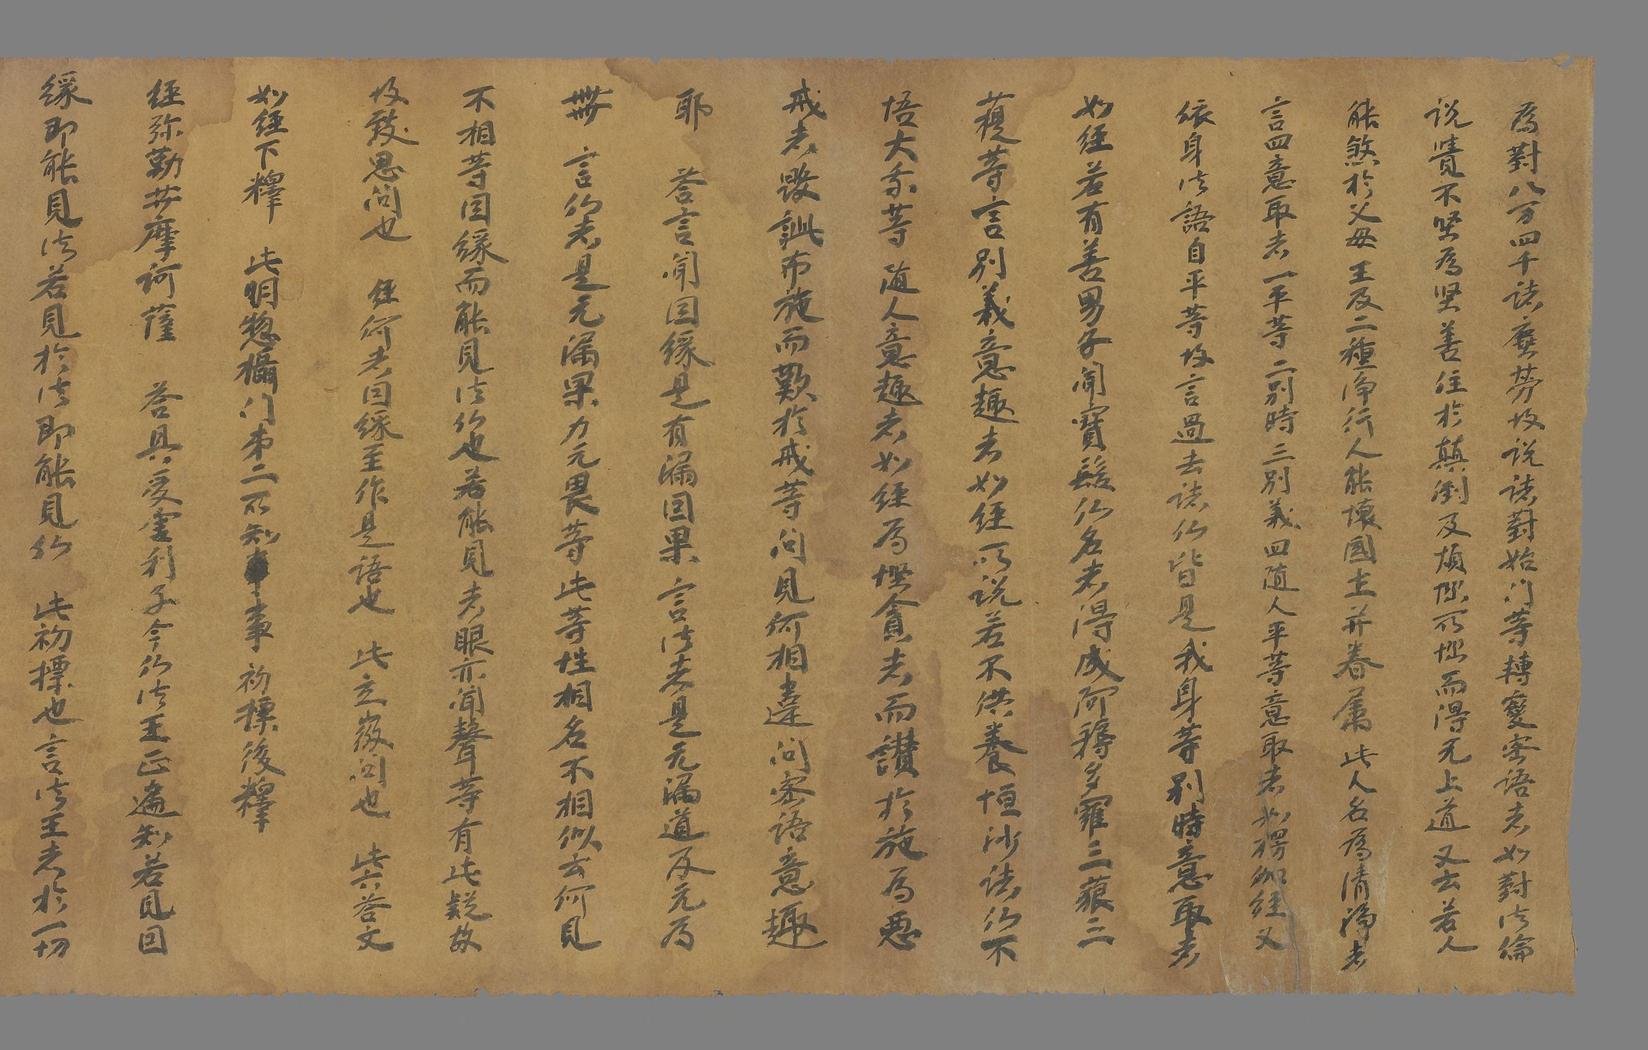 為對八万四千諸塵勞故說諸對始門等轉變密語者如對法論
說覺不堅為堅善住於顛倒及煩惱所惱而得无上道又云若人
能煞於父母王及二種淨行人能壞國土并眷屬此人名為清淨者
言四意取者一平等二別時三別義四隨人平等意取者如楞伽經又
依身法語自平等故言過去諸仏皆是我身等別時意取者
如經若有善男子聞寶髻仏名者得成阿耨多羅三藐三
菩等言別義意趣者如經所說若不供養恒沙諸仏不
悟大乘等隨人意趣者如經為慳貪者而讚於施為惡
戒者毀訿布施而歎於戒等問見何相違問密語意趣
耶 荅言聞因緣是有漏因果言法者是无漏道及无為
無 言仏者是无漏果力无畏等此等性相名不相似云何見
不相等因緣而能見法仏也若能見者眼亦聞聲等有此疑故
故發思問也 經何者因緣至作是語也 此立徵問也 此荅文
如經下釋 此明惣攝门弟二所知事 初摽後釋
經弥勒𦬇摩訶薩 荅具受舍利子今仏法王正遍知若見因
緣即能見法若見於法即能見仏 此初摽也言法王者於一切